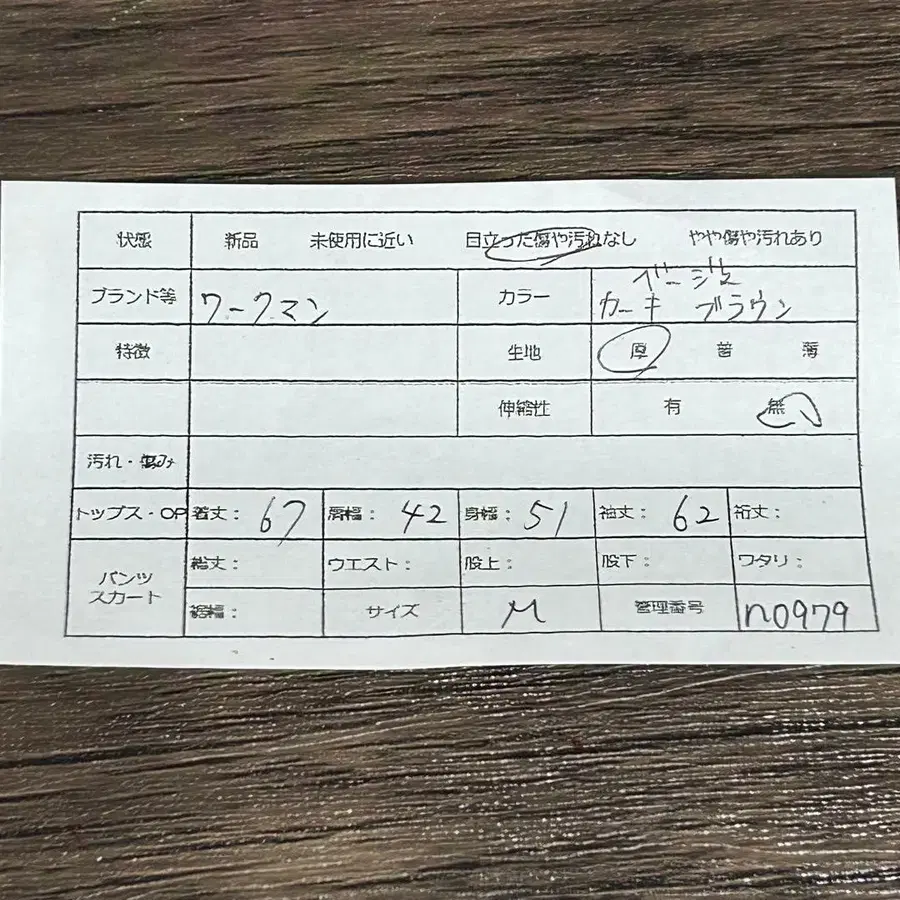 状態 新品 未使用に近い 目立った傷や汚れなし やや傷や汚れあり
ブランド等 ワークマン カラー ベージュ カーキ ブラウン
特徴 生地 厚 普 薄
伸縮性 有 無
汚れ・傷み
トップス・OP 着丈: 67 肩幅: 42 身幅: 51 袖丈: 62 裄丈:
パンツ スカート 総丈: ウエスト: 股上: 股下: ワタリ:
裾幅: サイズ M 管理番号 n0979